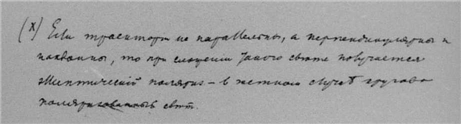 (x) Если траектории не параллельны, а перпендикулярны и
то при сложении такого света получается
эллиптический поляриз – в частном случае
поляризованный свет.